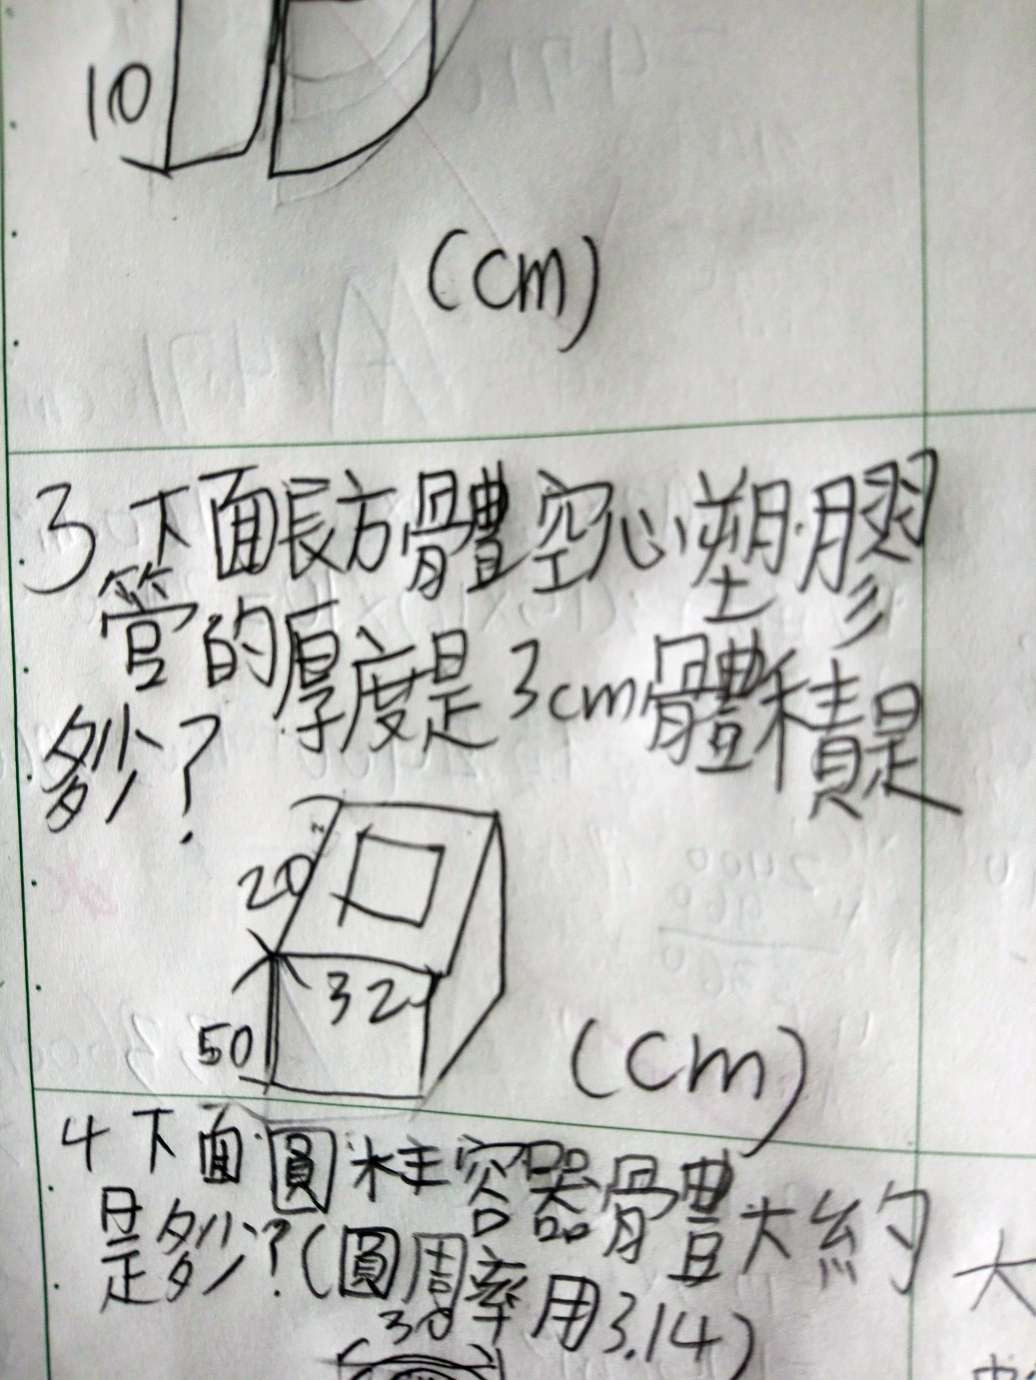 10
(cm)
3 下面長方體空心塑膠
管的厚度是3cm體積是
多少?
20
32
50
(cm)
4 下面圓柱容器體大約
是多少?(圓周率用3.14)
30
大